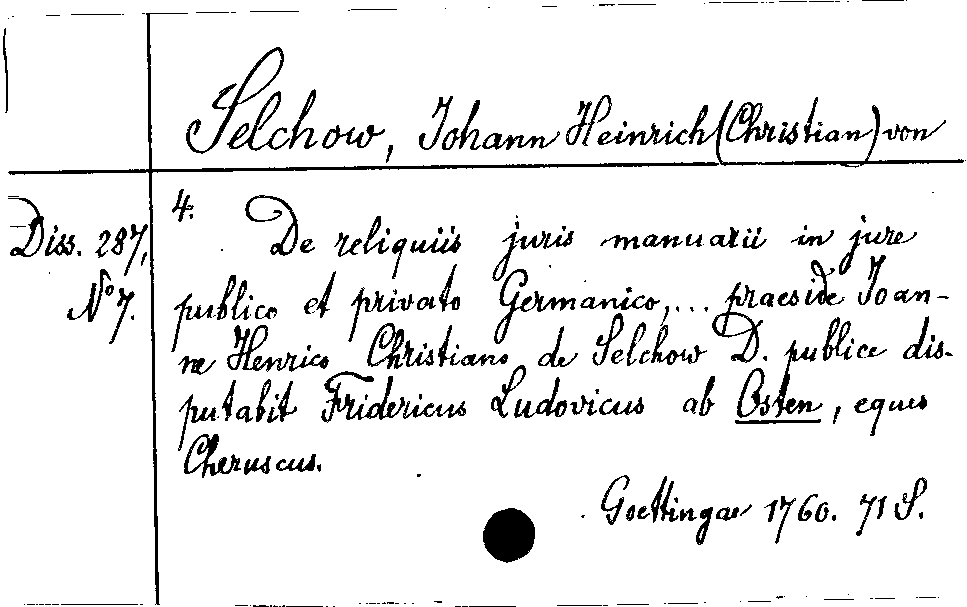 Selchow, Johann Heinrich (Christian) von
Diss. 287,
No 7.
4. De reliquiis juris manuarii in jure
publico et privato Germanico,... praeside Joan-
ne Henrico Christiano de Selchow D. publice dis-
putabit Fridericus Ludovicus ab Osten, eques
Cheruscus.
Goettingae 1760. 71 S.